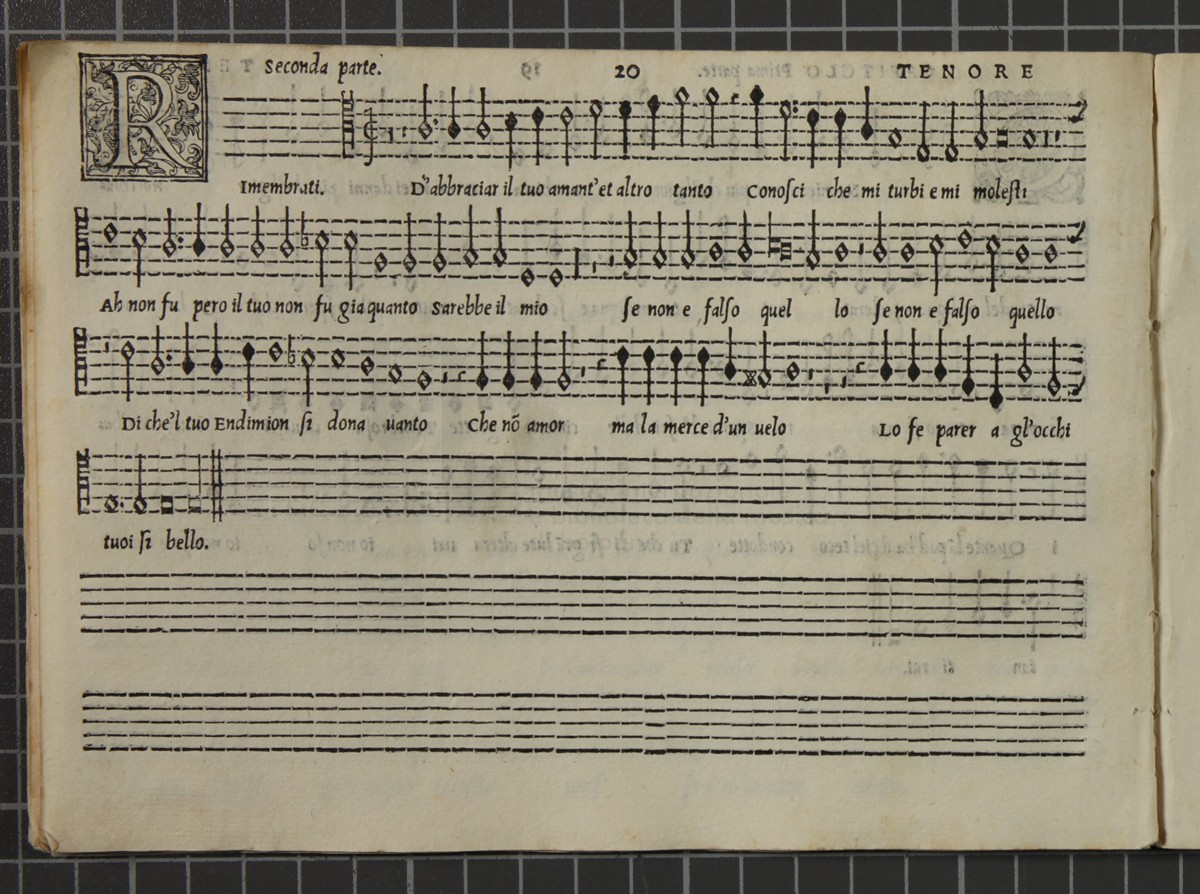 Seconda parte. 20 TENORE
RImembrati. D'abbracciar il tuo amant'et altro tanto Conosci che mi turbi e mi molesti
Ah non fu pero il tuo non fu gia quanto Sarebbe il mio se non e falso quel lo se non e falso quello
Di che'l tuo Endimion si dona uanto Che nõ amor ma la merce d'un uelo Lo fe parer a gl'occhi
tuoi si bello.